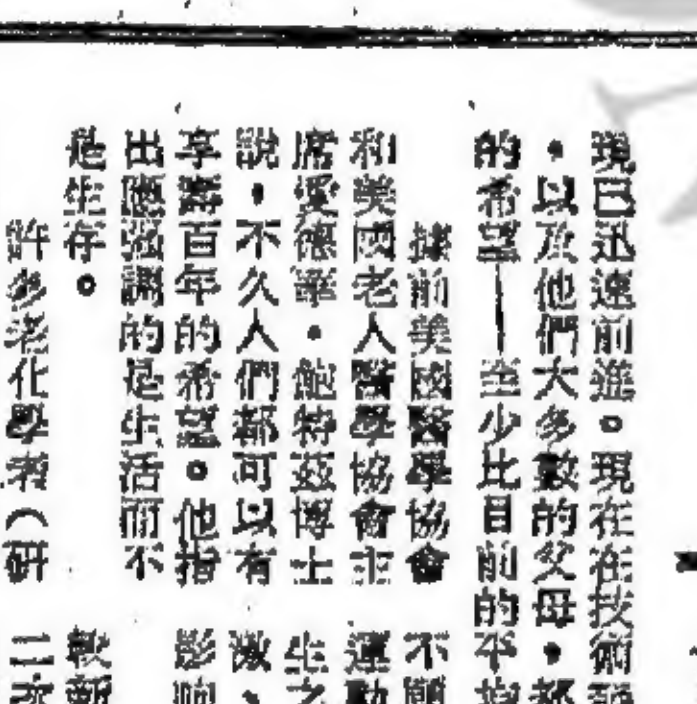 現已迅速前進。現在在技術
，以及他們大多數的父母，都
的希望——至少比目前的平均
據前美國醫學協會
和美國老人醫學協會主
席愛德華．鮑特茲博士
說，不久人們都可以有
享壽百年的希望。他指
出應強調的是生活而不
是生存。
許多老化學者（研
不
運動
生之
激、
影响
軟
二次